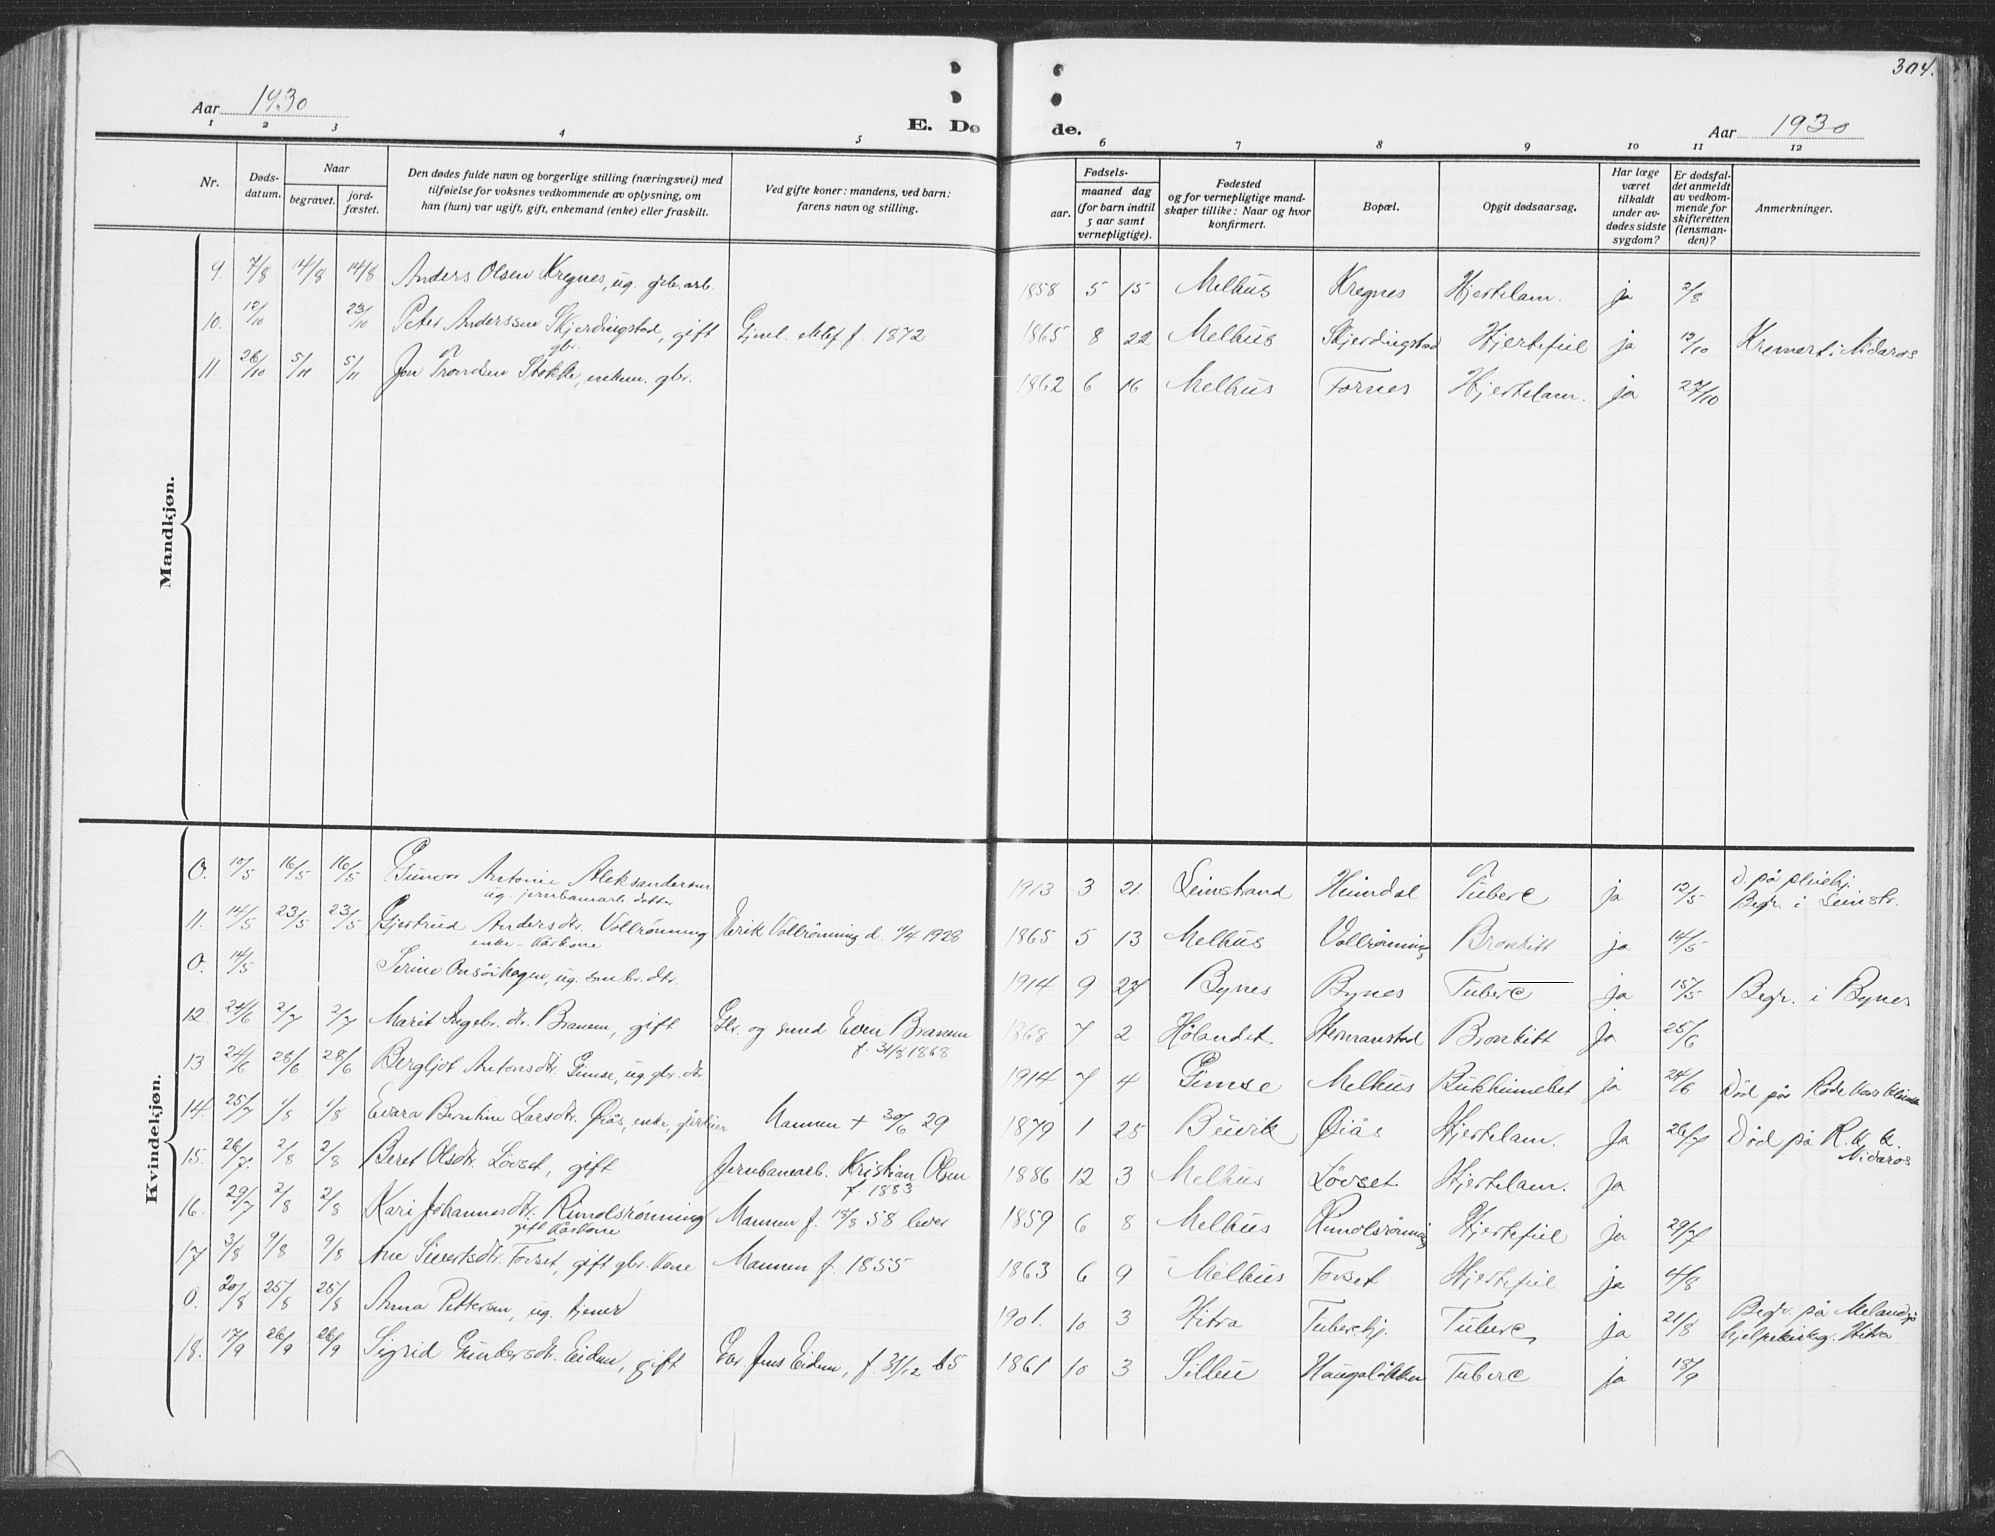 304.
Aar 1930
E. Dø
de.
Aar 1930
1 2 3 4 5 6 7 8 9 10 11 12
Nr.
Døds-
datum.
Naar
begravet.
jord-
fæstet.
Den dødes fulde navn og borgerlige stilling (næringsvei) med
tilføielse for voksnes vedkommende av oplysning, om
han (hun) var ugift, gift, enkemand (enke) eller fraskilt.
Ved gifte koner: mandens, ved barn:
farens navn og stilling.
Fødsels-
aar.
maaned dag
(for barn indtil
5 aar samt
vernepligtige).
Fødested
og for vernepligtige mand-
skaper tillike: Naar og hvor
konfirmert.
Bopæl.
Opgit dødsaarsag.
Har læge
været
tilkaldt
under av-
dødes sidste
sygdom?
Er dødsfal-
det anmeldt
av vedkom-
mende for
skifteretten
(lensman-
den)?
Anmerkninger.
Mandkjøn.
9. 7/8 14/8 14/8 Anders Olsen Kregnes, ug. arb. 1858 5 15 Melhus Kregnes Hjertelam. ja 2/8
10. 12/10 23/10 Peter Anderssen Skjerdingstad, gift f. 1872 1865 8 22 Melhus Skjerdingstad Hjertefeil ja 12/10 Kremert i Nidaros
gbr.
11. 26/10 5/11 5/11 Jon Trondsen Stokke, enkem. gbr. 1862 6 16 Melhus Fornes Hjertelam. ja 27/10
Kvindekjøn.
0. 10/5 16/5 16/5 Gunvor Antonie Aleksandersen 1913 3 21. Leinstrand Heimdal Tuberc ja 12/5 D. på pleiehj.
ug. jernbanearb. datter Begr. i Leinstr.
11. 14/5 23/5 23/5 Gjertrud Andersdtr. Vollrønning Erik Vollrønning d. 11/4 1928 1865 5 13 Melhus Vollrønning Bronkitt ja 14/5
enke - Kårkone
0. 14/5 Serine Onsøihagen, ug. dtr. 1914 9 27 Bynes Bynes Tuberc ja 15/5 Begr. i Bynes
12. 24/6 2/7 2/7 Marit Ingebr.dtr. Branem, gift Gbr. og smed Even Branem 1868 7 2 Hølandet. Hermanstad Bronkitt Ja 25/6
f. 31/8 1868
13 24/6 28/6 28/6 Bergljot Antonsdtr. Gimse, ug. gbr. dtr 1914 7 4 Gimse Melhus ja 24/6 Død på Røde Kors
14. 25/7 1/8 1/8 Larsdtr. Øiås, enke, Mannen + 30/6 29 1879 1 25 Buvik Øiås Hjertelam. Ja 26/7 Død på R. k. k.
Nidaros
15. 26/7. 2/8 2/8 Beret Olsdtr. Løvset, gift Jernbanearb. Kristian Olsen 1886 12 3 Melhus Løvset Hjertelam. Ja
f. 1883
16. 29/7 2/8 2/8 Kari Johannesdtr. Rimolsrønning Mannen f. 18/8 58 lever 1859 6 8 Melhus Rimolsrønning Hjertefeil ja 29/7
gift Kårkone
17 3/8 9/8 9/8 Ane Sivertsdtr. Tovset, gift gbr. kone Mannen f. 1855 1863 6 9 Melhus Tovset Hjertefeil ja 4/8
0. 20/8 25/8 25/8 Anna Pettersen, ug. tjener 1901. 10 3 Hitra Tuberc.hj. Tuberc, ja 21/8 Begr. på Melandsjø
hjelpekirkeg. Hitra
18. 17/9 26/9 26/9 Sigrid Gundersdtr. Eidem, gift Jens Eidem, f. 31/12 65 1861 10 3 Selbu Haugaløkken Tuberc ja 18/9